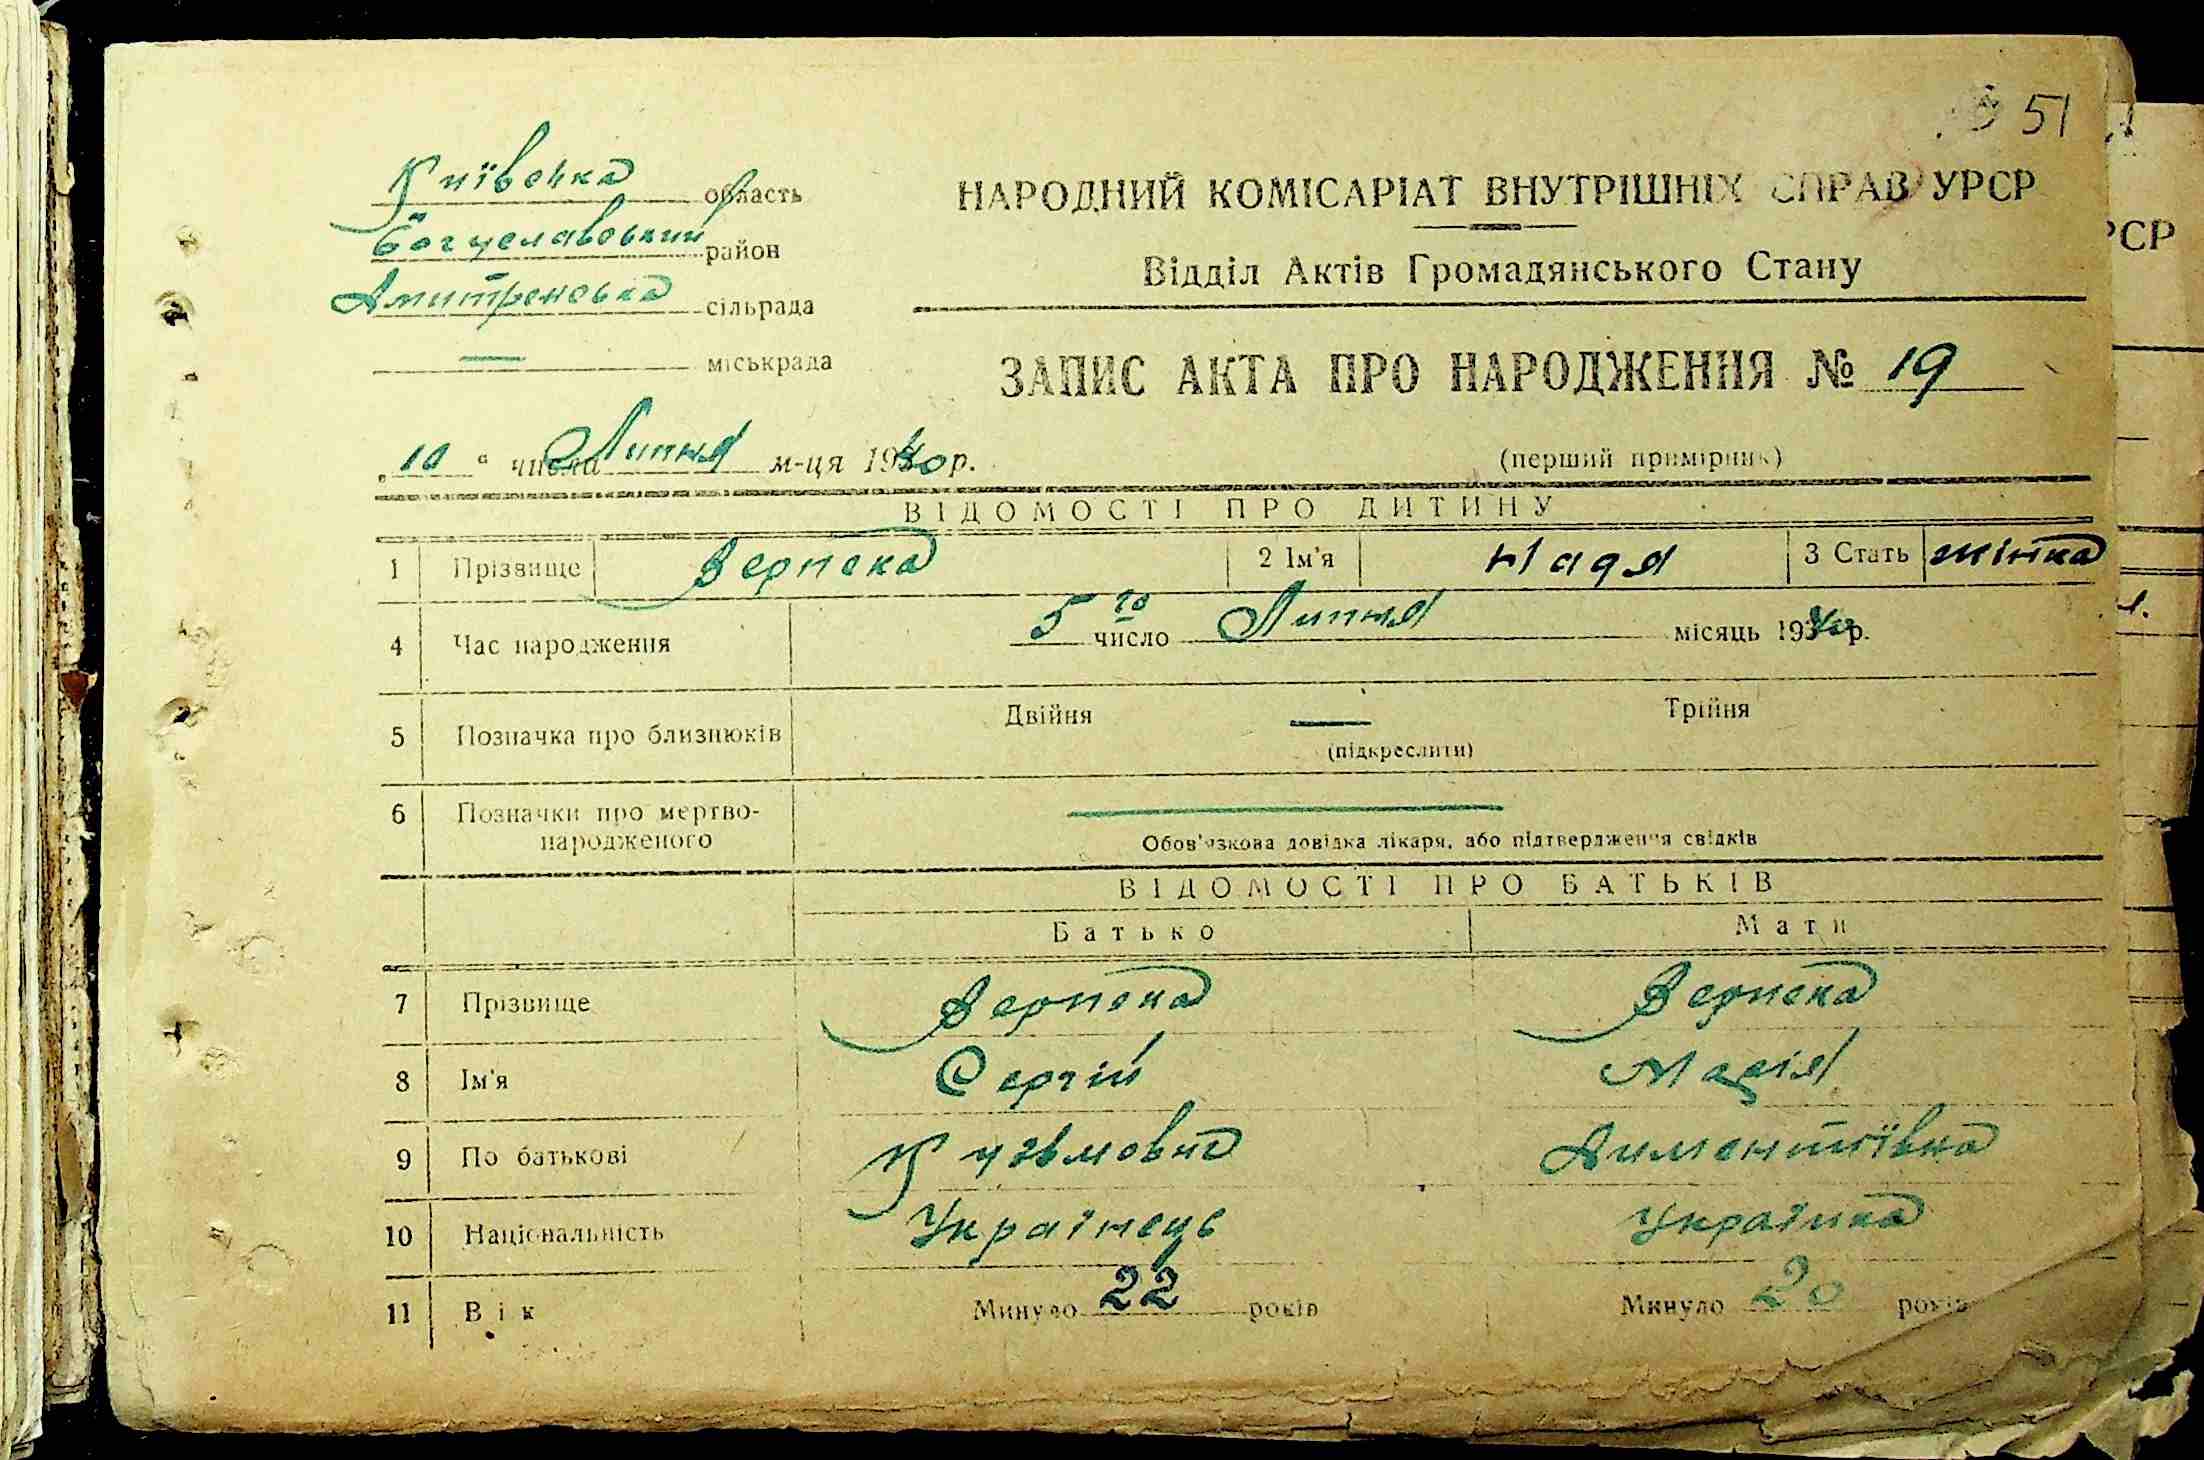 51
Київська область
Богуславський район
Дмитренська сільрада
— міськрада
НАРОДНИЙ КОМІСАРІАТ ВНУТРІШНІХ СПРАВ УРСР
Відділ Актів Громадянського Стану
ЗАПИС АКТА ПРО НАРОДЖЕННЯ № 19
„10“ числа Липня м-ця 1940 р.
(перший примірник)
ВІДОМОСТІ ПРО ДИТИНУ
1 Прізвище Верпека 2 Ім'я Надя 3 Стать жінка
4 Час народження 5го число Липня місяць 1940 р.
5 Позначка про близнюків Двійня — Трійня
(підкреслити)
6 Позначки про мертво-
народженого —
Обов'язкова довідка лікаря, або підтвердження свідків
ВІДОМОСТІ ПРО БАТЬКІВ
Батько Мати
7 Прізвище Верпека Верпека
8 Ім'я Сергій Марія
9 По батькові Кузьмович
10 Національність Українець Українка
11 Вік Минуло 22 років Минуло 20 років
РСР